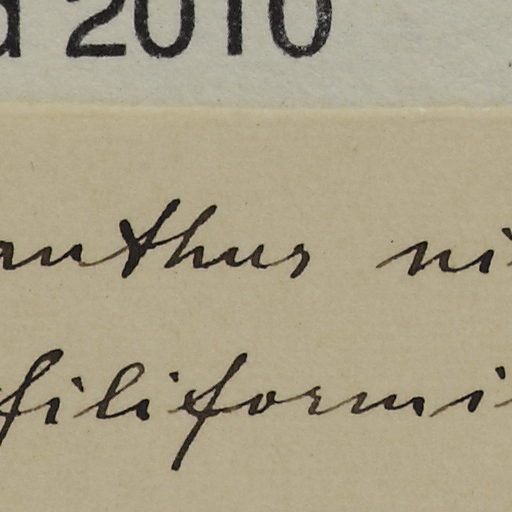 d 2010
anthus ni
filiformi